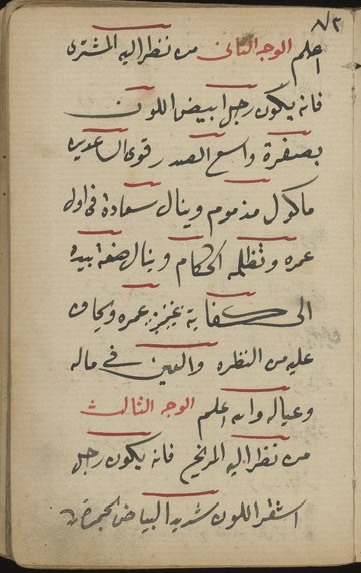 ٨٢
اعلم الوجه الثانى من نظر اليه المشترى
فانه يكون رجل ابيض اللون
بصفرة واسع الصدر قوى ال
ماكول مذموم وينال سعادة فى اول
عمره وتظلمه الحكام وينال صنعة بيده
الى كفاية عزيز عمره ويخاف
عليه من النظره والعين فى ماله
وعياله والله اعلم الوجه الثالث
من نظر اليه المريخ فانه يكون رجل
اشقر اللون شديد البياض